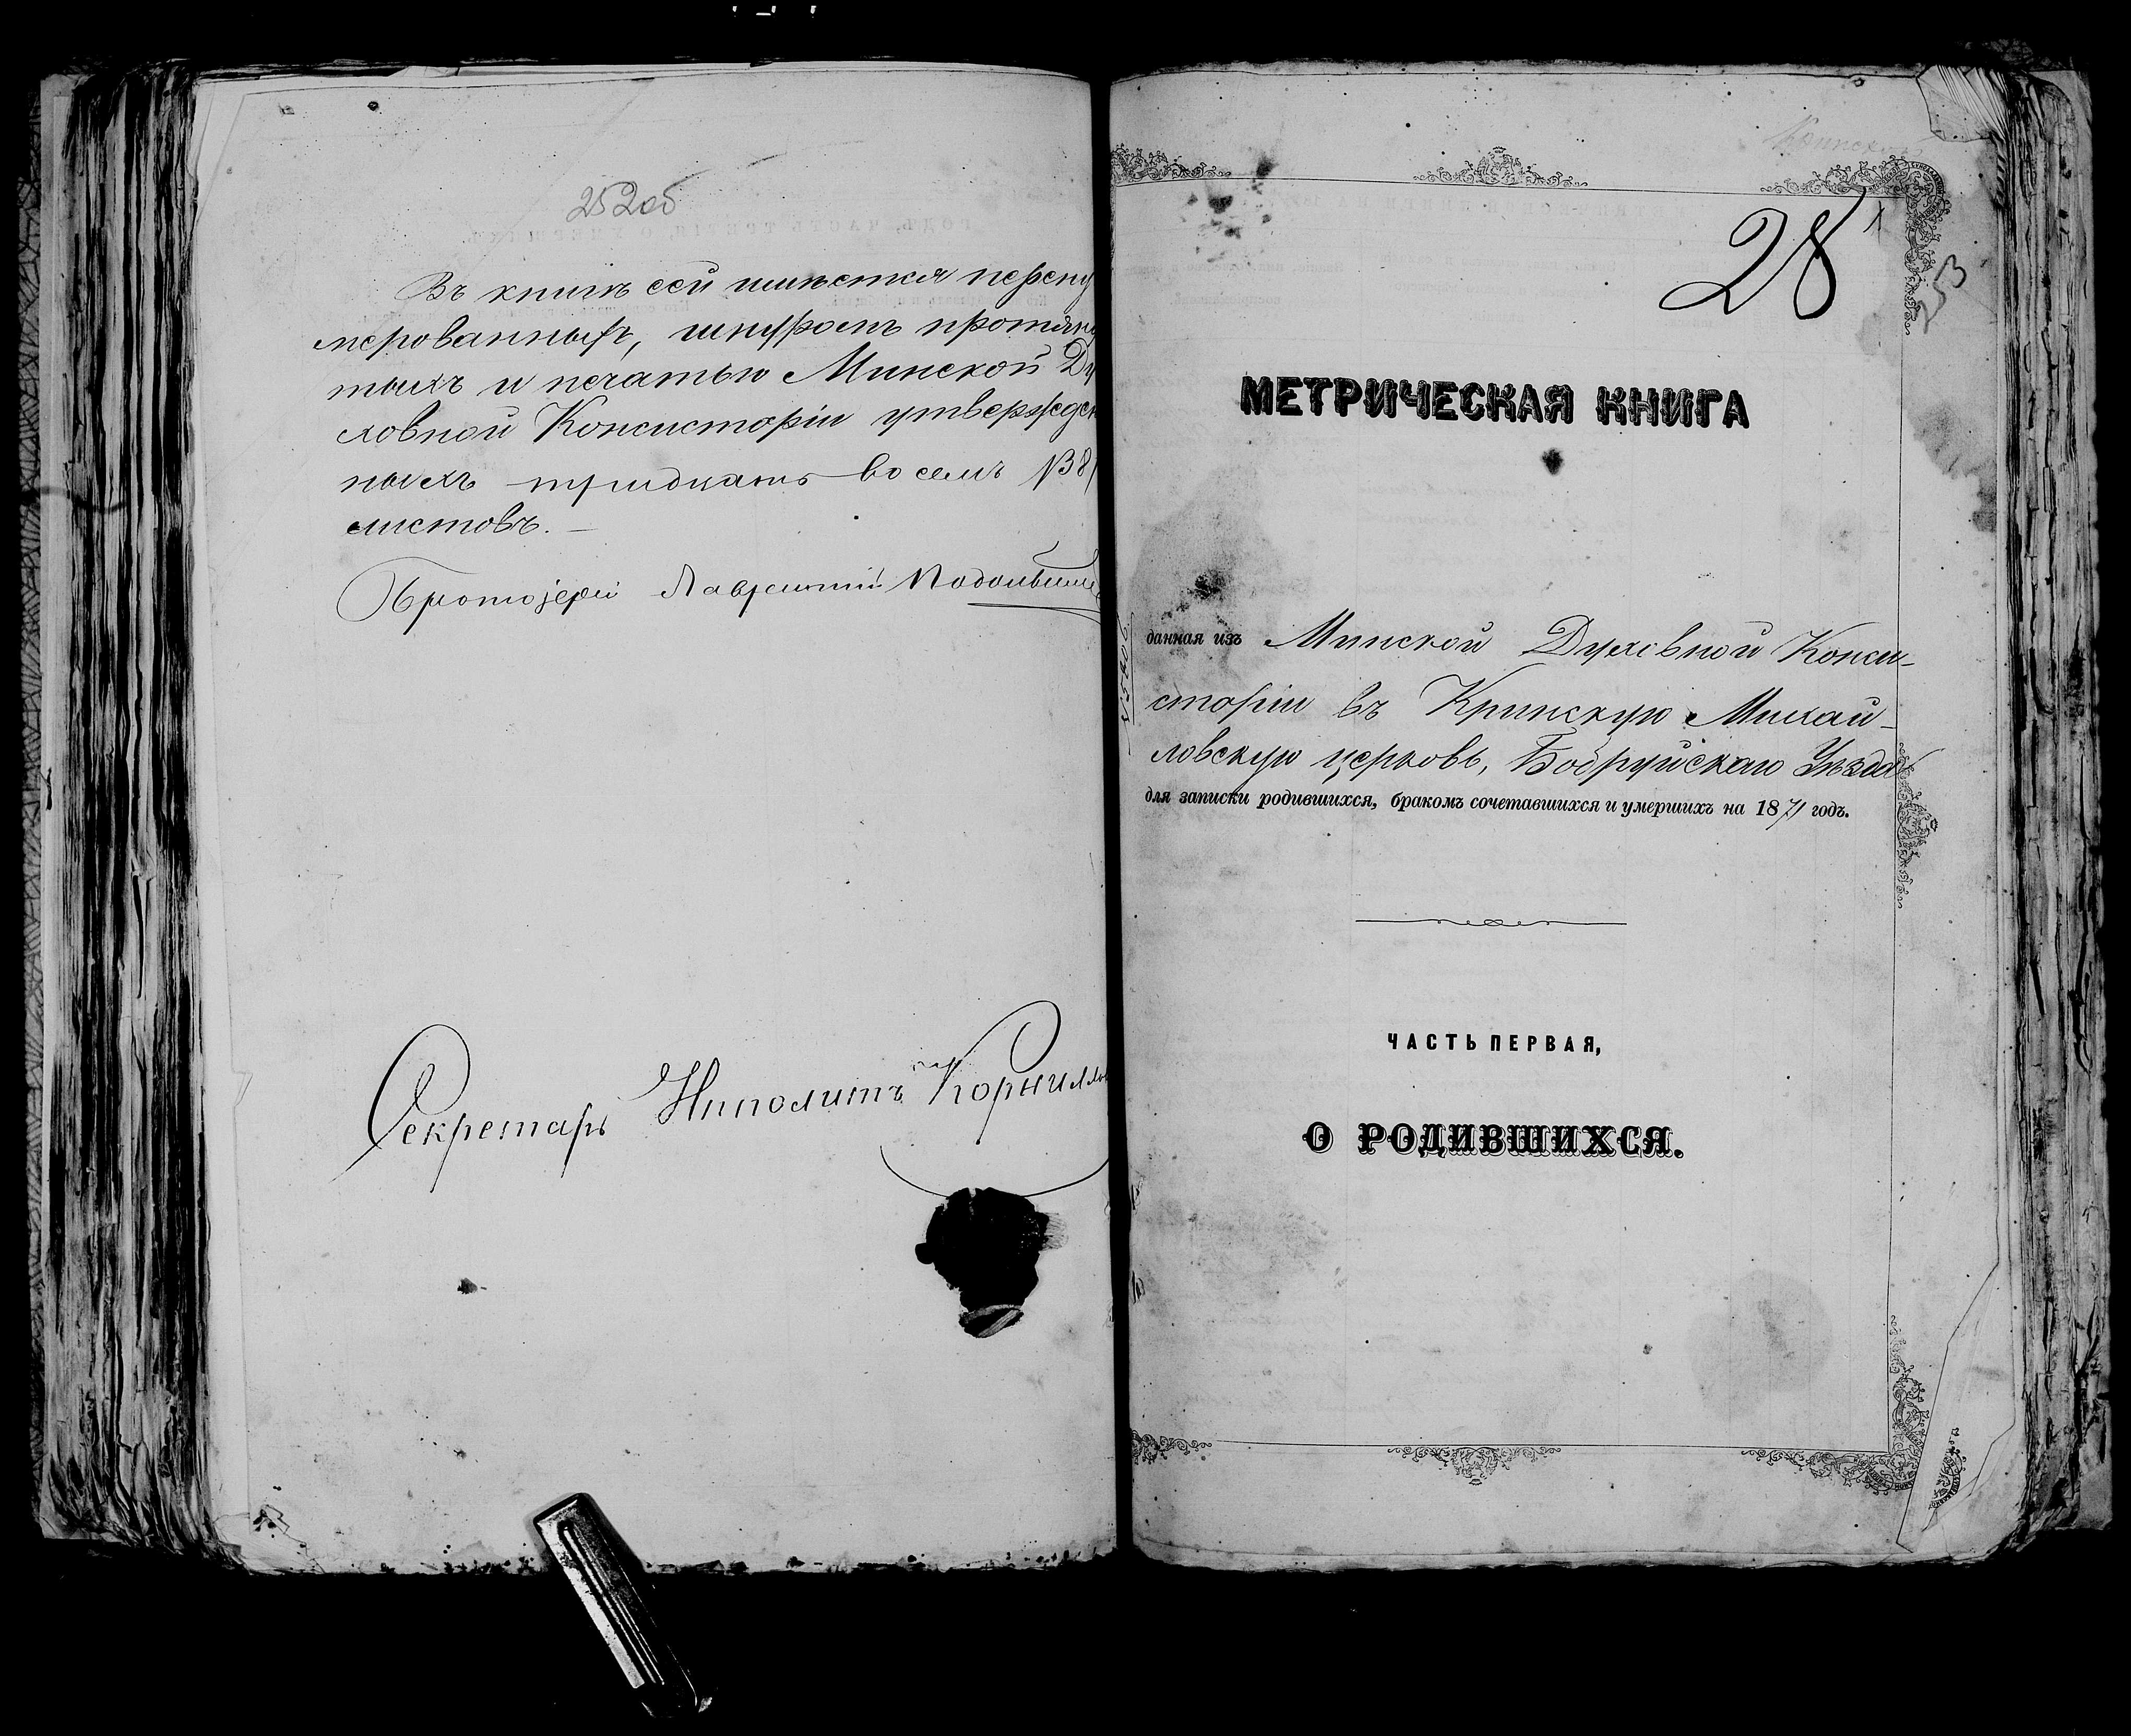 252об
Въ книгѣ сей имѣется перену
мерованныхъ, шнуромъ протяну
тыхъ и печатью Минской Ду
ховной Консисторіи утвержден
ныхъ тридцать восемь /38/
листовъ. —
Протоіерей Лаврентій
Секретарь Ипполитъ Корнилло
28
1
253
МЕТРИЧЕСКАЯ КНИГА
данная изъ Минской Духовной Конси-
сторіи въ Кринскую Михай-
ловскую церковь, Бобруйскаго Уѣзда
для записки родившихся, бракомъ сочетавшихся и умершихъ на 1871 годъ.
ЧАСТЬ ПЕРВАЯ,
О РОДИВШИХСЯ.